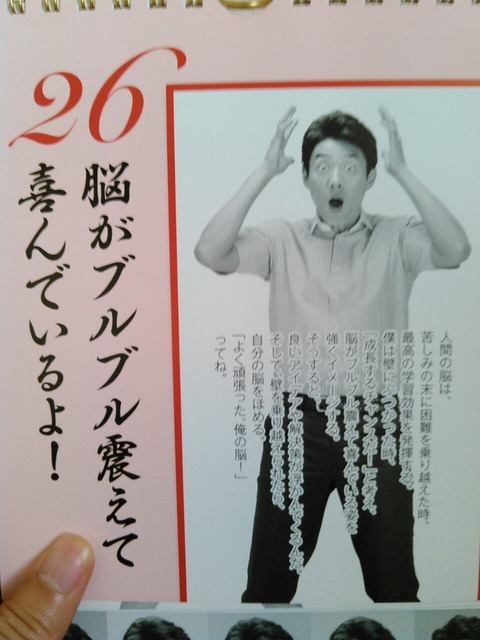 26
脳がブルブル震えて
喜んでいるよ！
人間の脳は、
苦しみの末に困難を乗り越えた時、
最高の学習効果を発揮する。
僕は壁にぶつかった時、
「成長するチャンスだー」と考え、
脳がブルブル震えて喜んでいる姿を
強くイメージする。
そうすると、
良いアイデアや解決策が浮かんでくるんだ。
そして、壁を乗り越えられたなら、
自分の脳をほめる。
「よく頑張った、俺の脳！」
ってね。